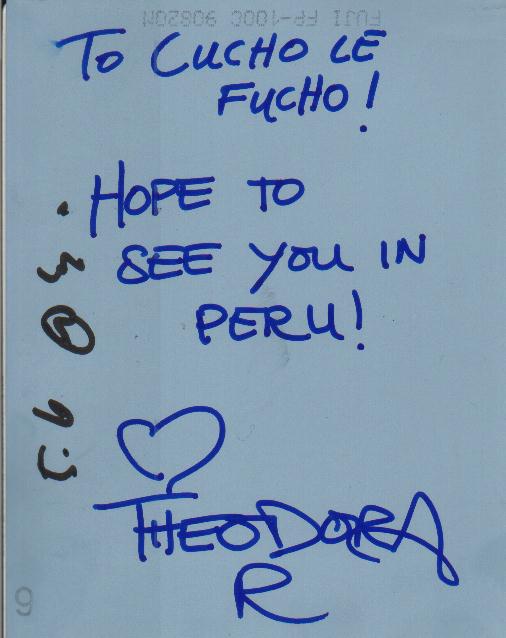 FUJI FP-100C 90820N
TO CUCHO LE
FUCHO!
HOPE TO
SEE YOU IN
PERU!
THEODORA
R
9